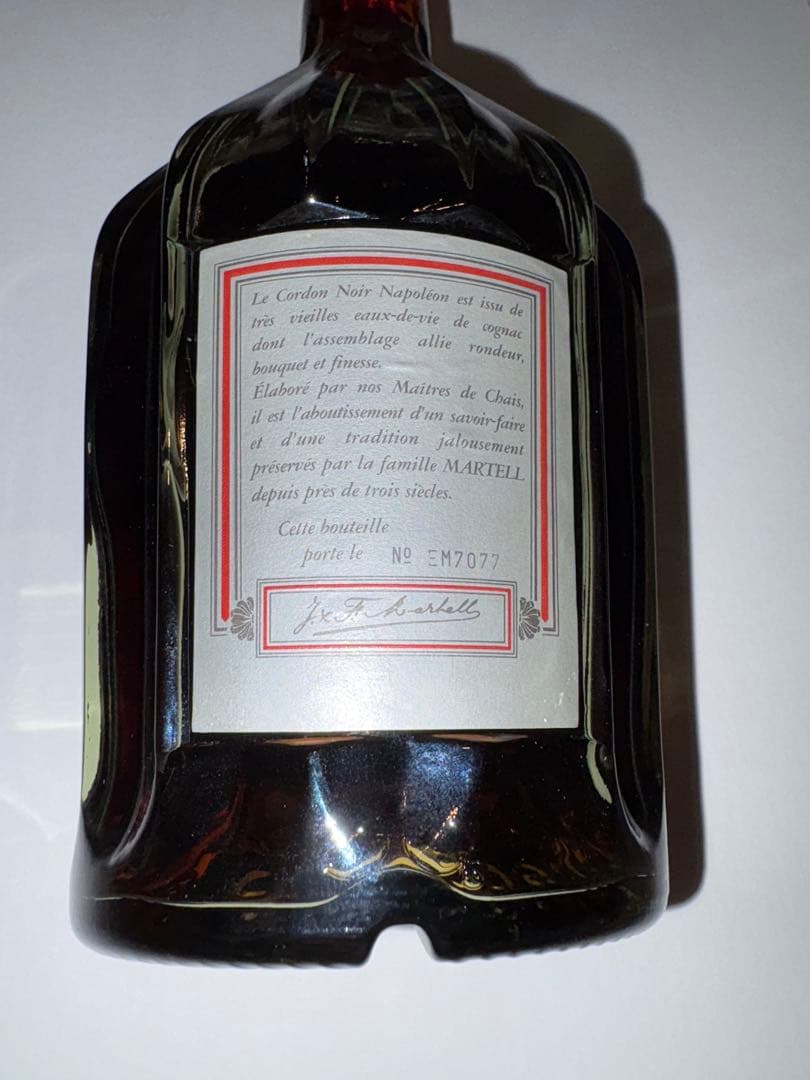 Le Cordon Noir Napoléon est issu de
très vieilles eaux-de-vie de cognac
dont l'assemblage allie rondeur,
bouquet et finesse.
Élaboré par nos Maîtres de Chais,
il est l'aboutissement d'un savoir-faire
et d'une tradition jalousement
préservés par la famille MARTELL
depuis près de trois siècles.
Cette bouteille
porte le Nº EM7077
J & F Martell